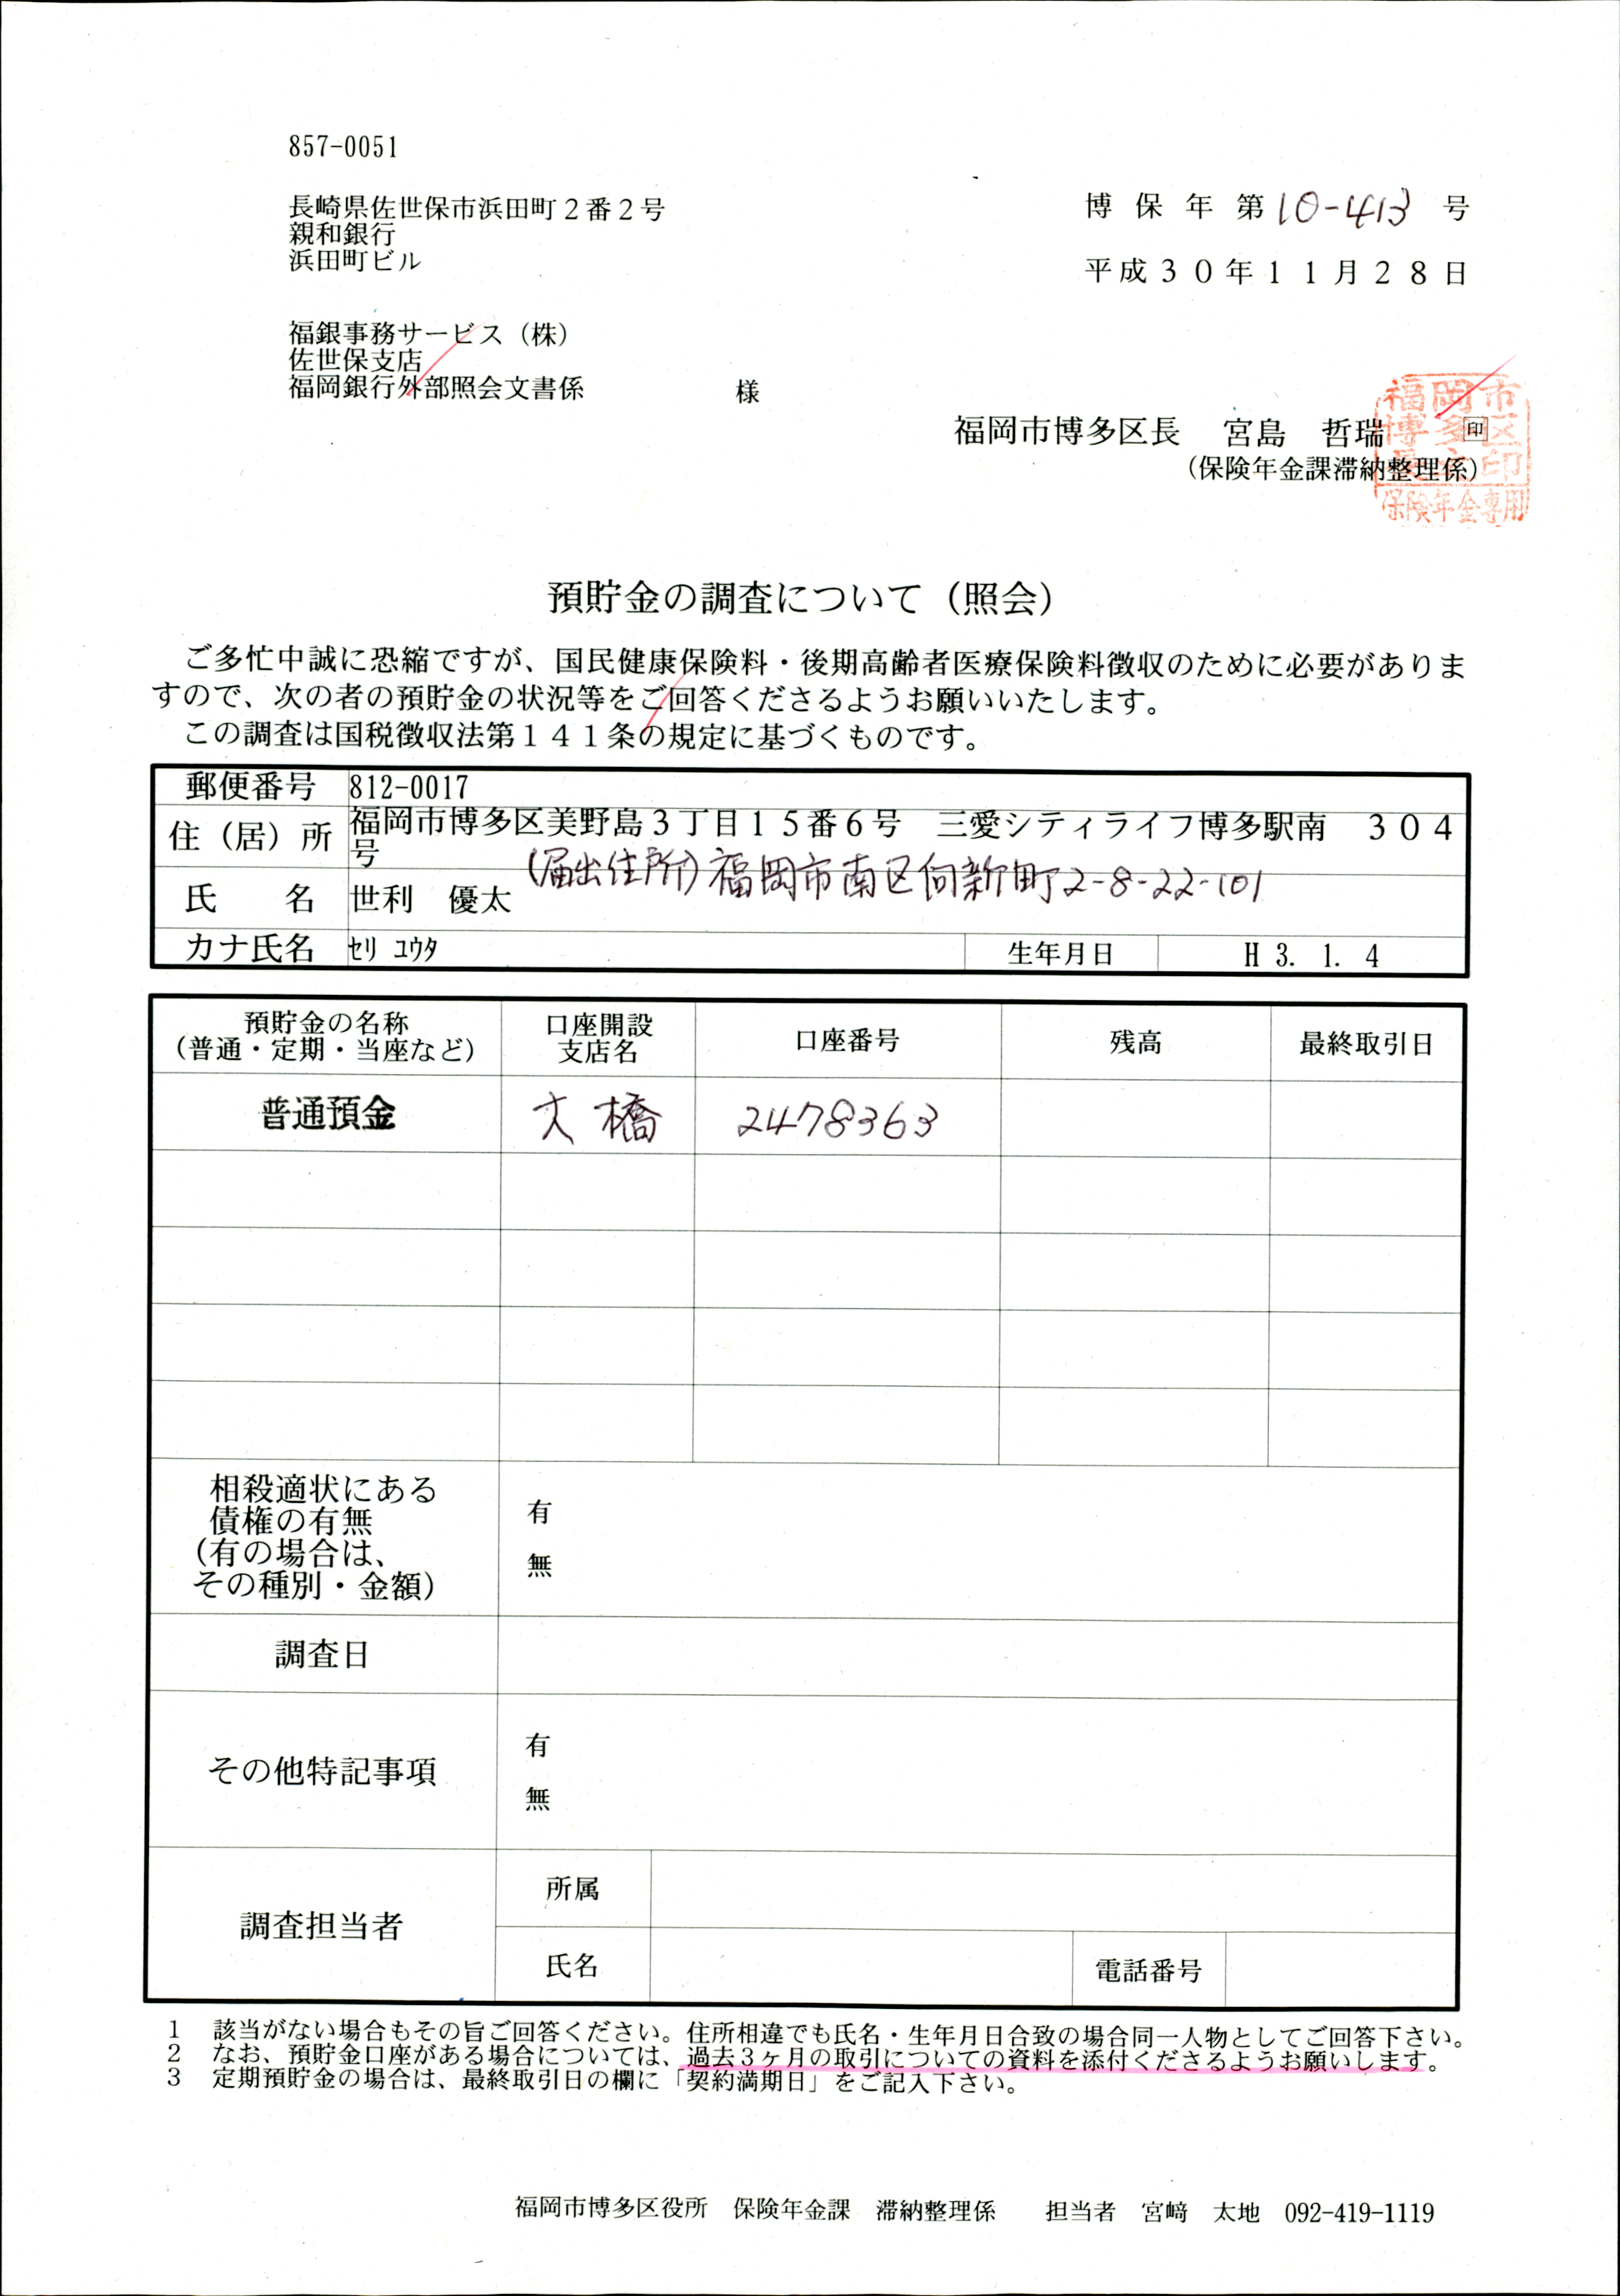 857-0051
長崎県佐世保市浜田町２番２号
親和銀行
浜田町ビル
博保年第10-413号
平成３０年１１月２８日
福銀事務サービス（株）
佐世保支店
福岡銀行外部照会文書係　様
福岡市博多区長　宮島　哲瑞　印
（保険年金課滞納整理係）
福岡市
博多区
長之印
保険年金専用
預貯金の調査について（照会）
ご多忙中誠に恐縮ですが、国民健康保険料・後期高齢者医療保険料徴収のために必要がありま
すので、次の者の預貯金の状況等をご回答くださるようお願いいたします。
この調査は国税徴収法第１４１条の規定に基づくものです。
郵便番号　812-0017
住（居）所　福岡市博多区美野島３丁目１５番６号　三愛シティライフ博多駅南　３０４
号
(届出住所)福岡市南区向新町2-8-22-101
氏　名　世利　優太
カナ氏名　ｾﾘ ﾕｳﾀ　生年月日　H 3. 1. 4
預貯金の名称
（普通・定期・当座など）
口座開設
支店名
口座番号
残高
最終取引日
普通預金　大橋　2478363
相殺適状にある
債権の有無
（有の場合は、
その種別・金額）
有
無
調査日
その他特記事項
有
無
調査担当者
所属
氏名
電話番号
1　該当がない場合もその旨ご回答ください。住所相違でも氏名・生年月日合致の場合同一人物としてご回答下さい。
2　なお、預貯金口座がある場合については、過去３ヶ月の取引についての資料を添付くださるようお願いします。
3　定期預貯金の場合は、最終取引日の欄に「契約満期日」をご記入下さい。
福岡市博多区役所　保険年金課　滞納整理係　担当者　宮﨑　太地　092-419-1119